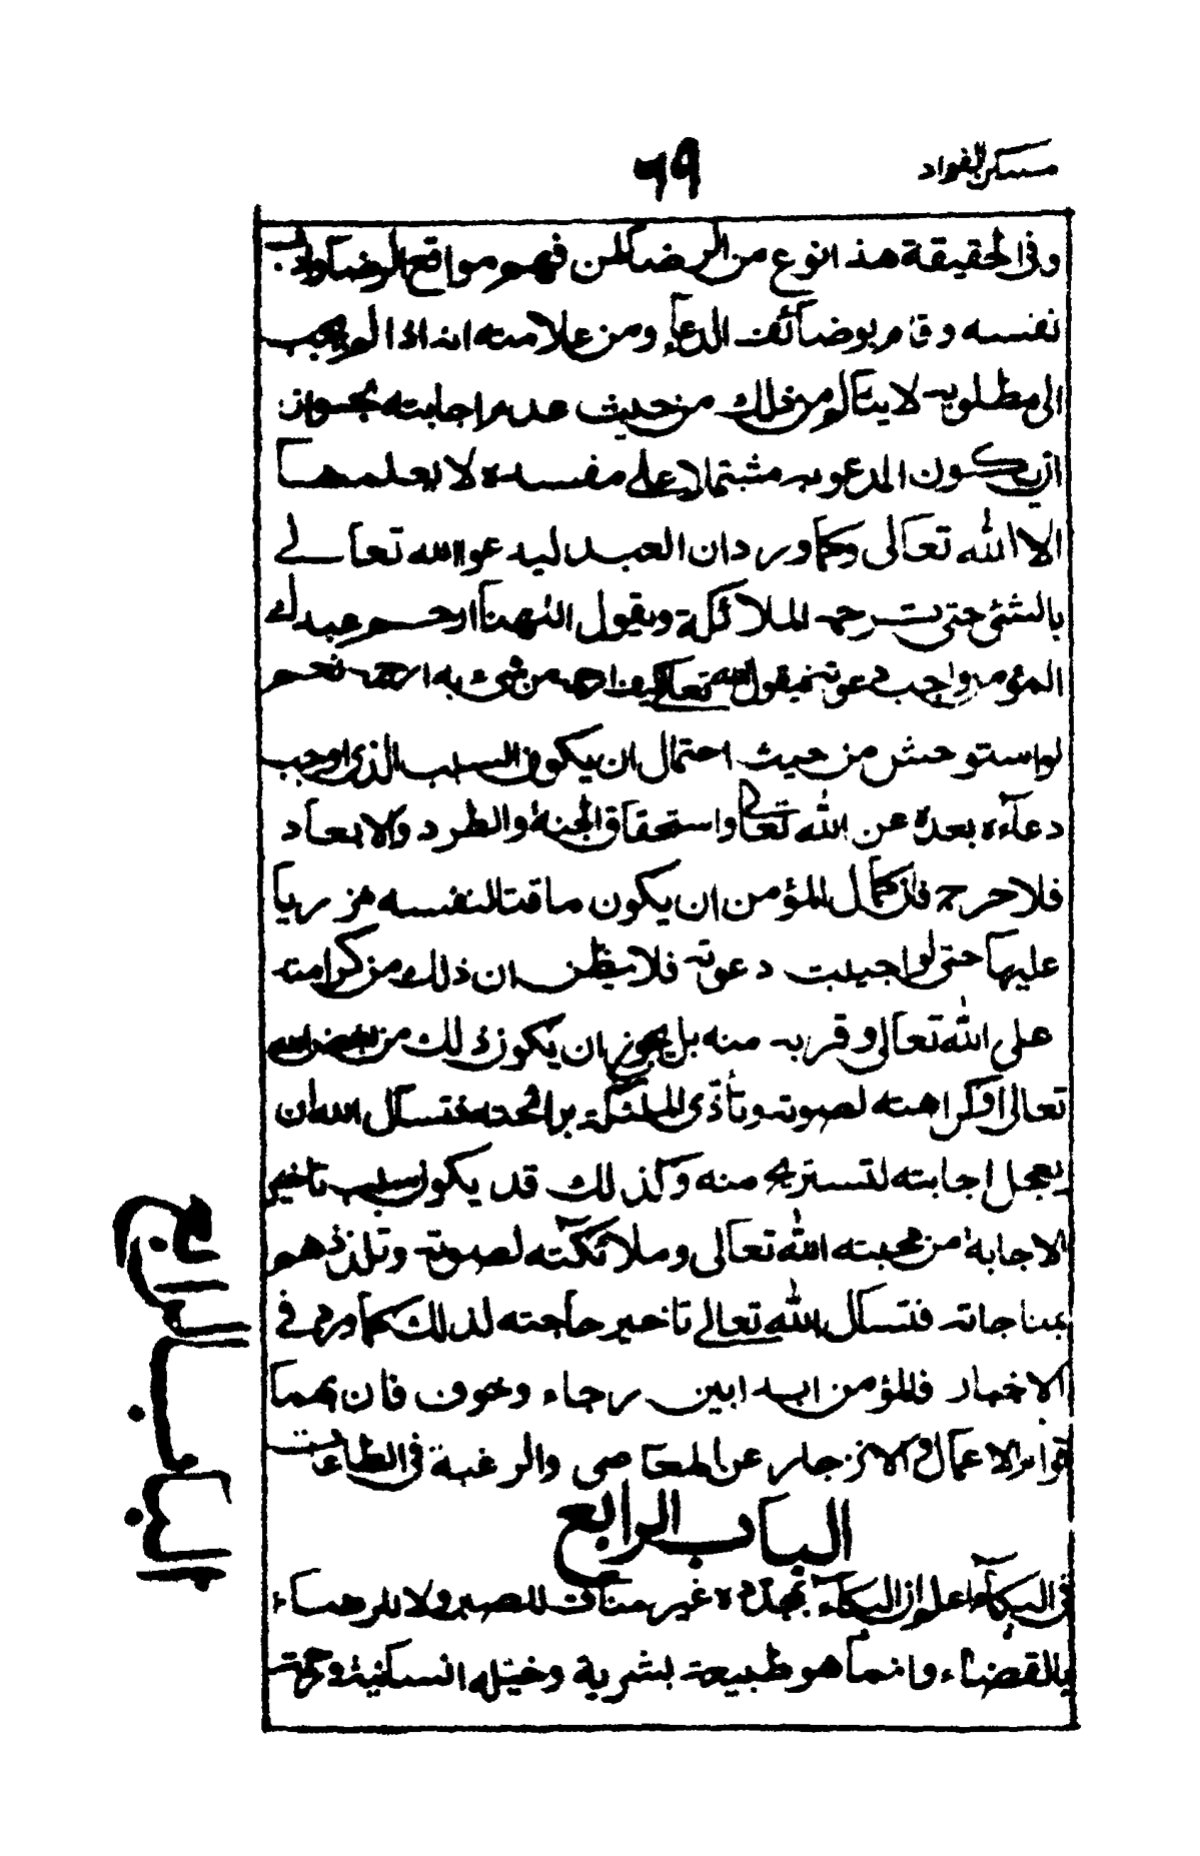 مسكن الفواد
٦٩
وفى الحقيقة هذا نوع من الرضا لمن فهم مواقع الرضا وادب
نفسه وقام بوضائف الدعاء ومن علامته انه اذا لم يجب
الى مطلوبه لا يتألم من ذلك من حيث عدم اجابته بجواز
ان يكون المدعو به مشتملا على مفسدة لا يعلمها
الا الله تعالى وكما ورد ان العبد ليدعو الله تعالى
بالشئ حتى ترحمه الملائكة ويقول الٰهنا ارحم عبدك
المؤمن واجب دعوته فيقول الله تعالى كيف ارحمه من شئ به ارحمه نعم
لو استوحش من حيث احتمال ان يكون السبب الذى اوجب
دعاءه بعده عن الله تعالى واستحقاق الجنة والطرد والابعاد
فلا حرج فان كمال المؤمن ان يكون ماقتا لنفسه مزريا
عليها حتى لو اجيبت دعوته فلا يظن ان ذلك من كرامته
على الله تعالى وقربه منه بل يجوز ان يكون ذلك من بغض الله
تعالى او كراهته لصوته وتأذى الملئكة برائحته فتسأل الله ان
يعجل اجابته لتستريح منه وكذلك قد يكون سبب تاخير
الاجابة من محبته الله تعالى وملائكته لصوته وتلذذهم
بمناجاته فتسأل الله تعالى تاخير حاجته لذلك كما ورد فى
الاخبار فالمؤمن ابدا بين رجاء وخوف فان بهما
قوام الاعمال والانزجار عن المعاصى والرغبة فى الطاعات
الباب الرابع
فى البكاء اعلم ان البكاء بمجرده غير مناف للصبر ولا للرضاء
بالقضاء وانما هو طبيعة بشرية وخبلة انسانية ورحمة
الباب الرابع